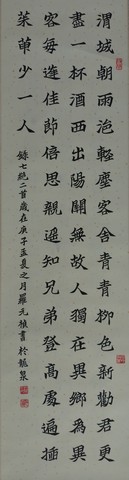 渭城朝雨浥輕塵客舍青青柳色新勸君更
盡一杯酒西出陽關無故人獨在異鄉為異
客每逢佳節倍思親遙知兄弟登高處遍插
茱萸少一人
錄七絕二首歲在庚子孟夏之月羅元楨書於